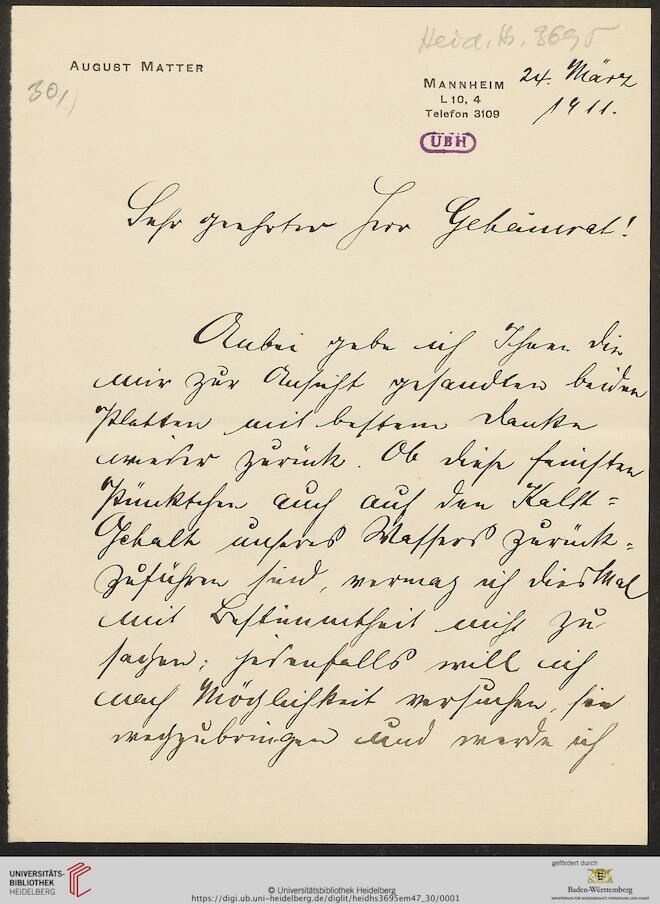 Heid. Hs. 3695
AUGUST MATTER
30,)
MANNHEIM
L 10, 4
Telefon 3109
24. März
1911.
UBH
Sehr geehrter Herr Geheimrat!
Anbei gebe ich Ihnen die
mir zur Ansicht gesandten beiden
Platten mit bestem Danke
wieder zurück. Ob diese feinsten
Pünktchen auch auf den Kalk=
Gehalt unseres Wassers zurück=
zuführen sind, vermag ich dies Mal
mit Bestimmtheit nicht zu
sagen; jedenfalls will ich
nach Möglichkeit versuchen, sie
wegzubringen und werde ich
UNIVERSITÄTS-
BIBLIOTHEK
HEIDELBERG
© Universitätsbibliothek Heidelberg
https://digi.ub.uni-heidelberg.de/diglit/heidhs3695em47_30/0001
gefördert durch
Baden-Württemberg
MINISTERIUM FÜR WISSENSCHAFT, FORSCHUNG UND KUNST